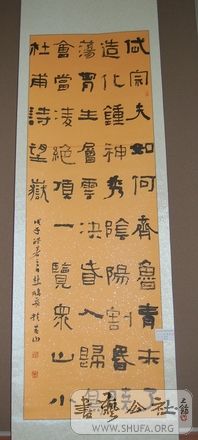 岱宗夫如何齊魯青未了
造化鍾神秀陰陽割昏曉
蕩胷生層雲決眥入歸鳥
會當凌絕頂一覽衆山小
杜甫詩望嶽
戊子
書藝公社
WWW.SHUFA.ORG